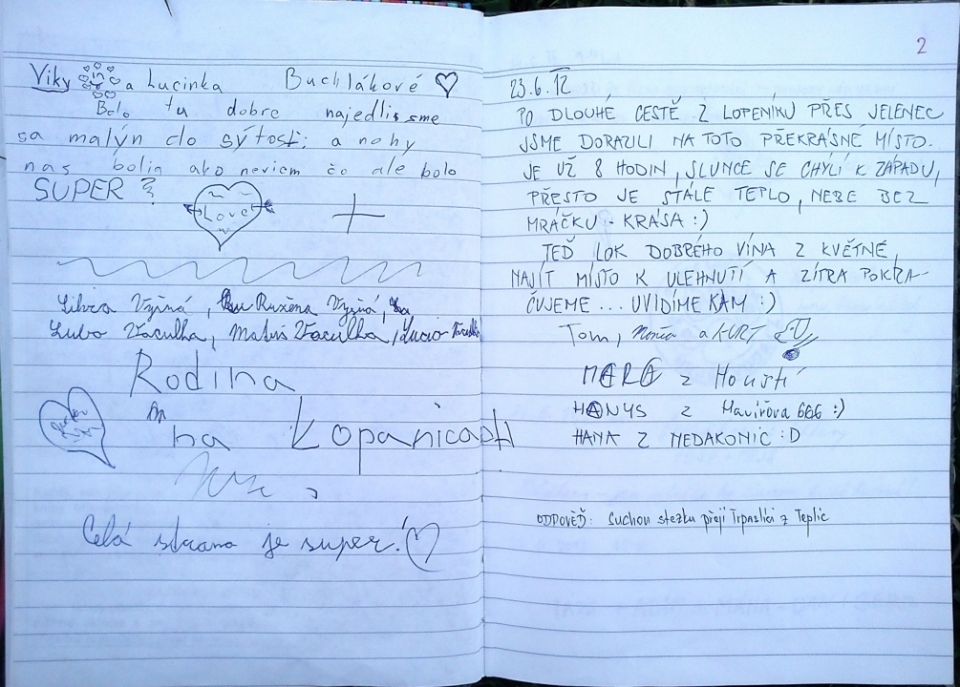 Viky a Lucinka Buchlákové
Bolo tu dobre najedli sme
sa malýn do sýtosti a nohy
nas bolia ako neviem čo ale bolo
SUPER
Love!
Silvia Vyžiná, Ruxena Vyžiná,
Lubo Vaculha, Matuš Vaculha, Lucio
Rodina
na Kopanicach
Celá strana je super!
2
23.6.12
PO DLOUHÉ CESTĚ Z LOPENÍKU PŘES JELENEC
JSME DORAZILI NA TOTO PŘEKRÁSNÉ MÍSTO.
JE UŽ 8 HODIN, SLUNCE SE CHÝLÍ K ZÁPADU,
PŘESTO JE STÁLE TEPLO, NEBE BEZ
MRÁČKU - KRÁSA :)
TEĎ LOK DOBRÉHO VÍNA Z KVĚTNÉ,
NAJÍT MÍSTO K ULEHNUTÍ A ZÍTRA POKRA-
ČUJEME... UVIDÍME KAM :)
Tom, Monča a KURT
MARA z Houští
HANYS z Havířova 666 :)
HANA Z NEDAKONIC :D
ODPOVĚĎ: Suchou stezku přejí Trpaslíci z Teplic